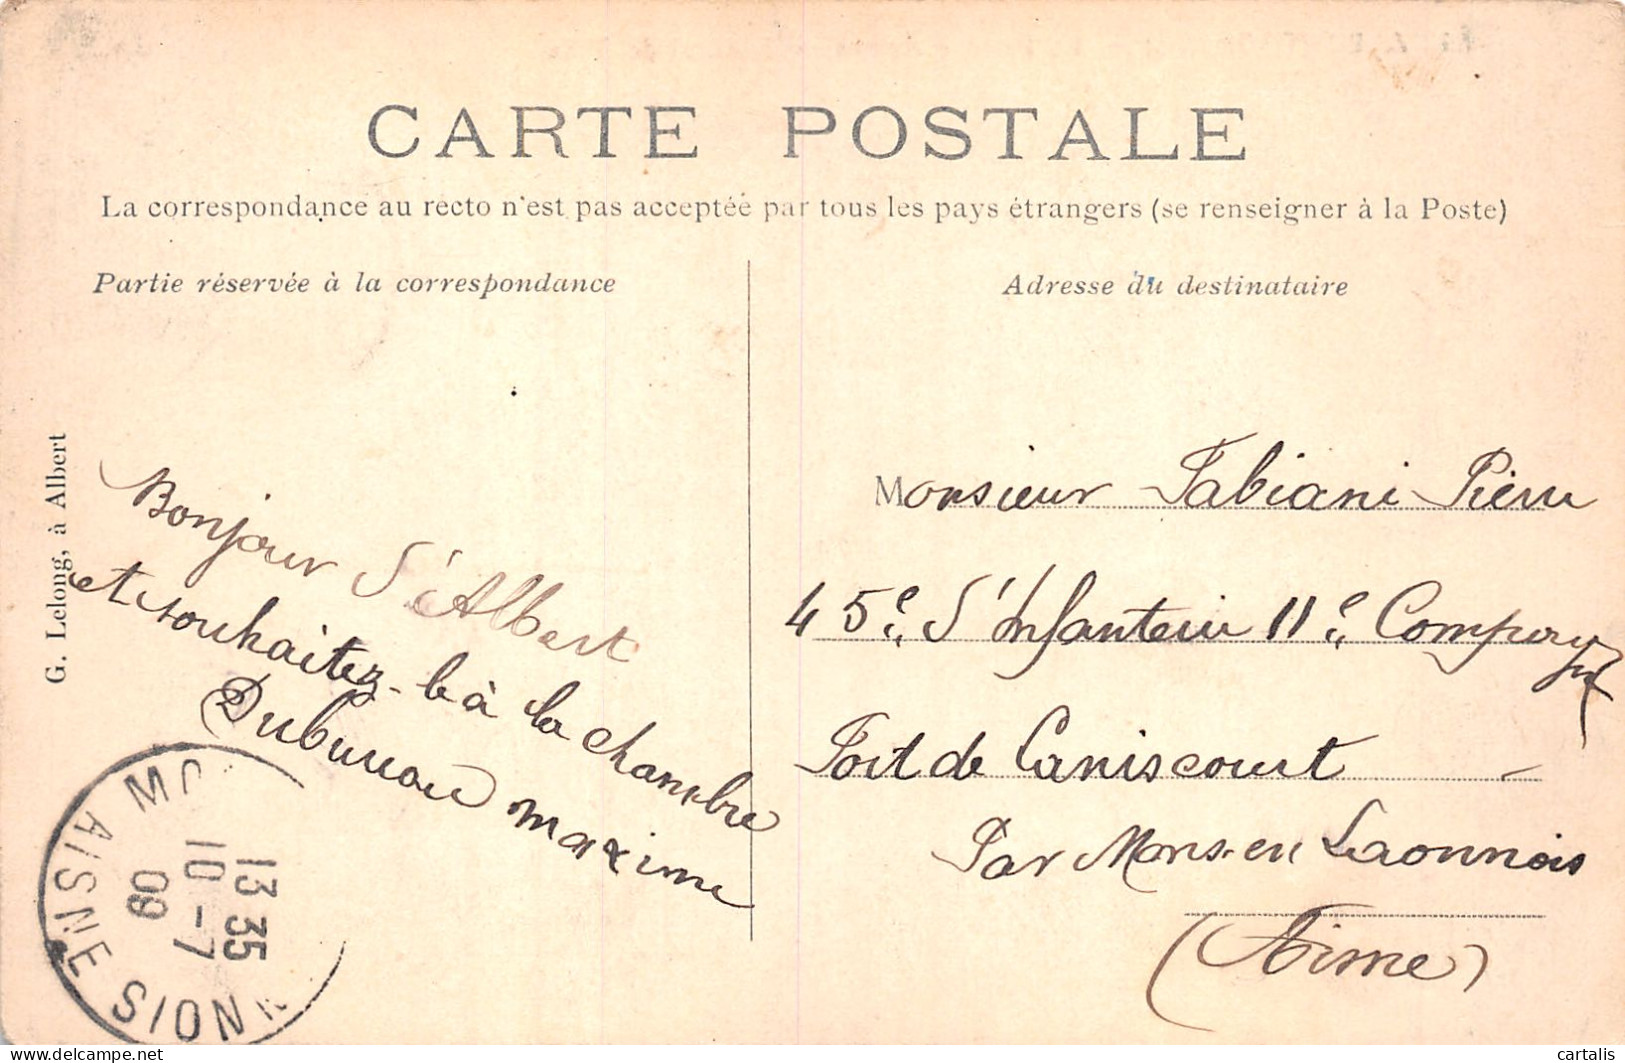 CARTE POSTALE
La correspondance au recto n'est pas acceptée par tous les pays étrangers (se renseigner à la Poste)
Partie réservée à la correspondance
Adresse du destinataire
G. Lelong, à Albert
Bonjour d'Albert
et souhaitez-le à la chambre
Dubureau maxime
Monsieur Fabiani Pierre
45e d'Infanterie 11e Compagnie
Fort de Laniscourt
Par Mons-en Laonnois
(Aisne)
13 35
10-7
09
AISNE
delcampe.net
cartalis